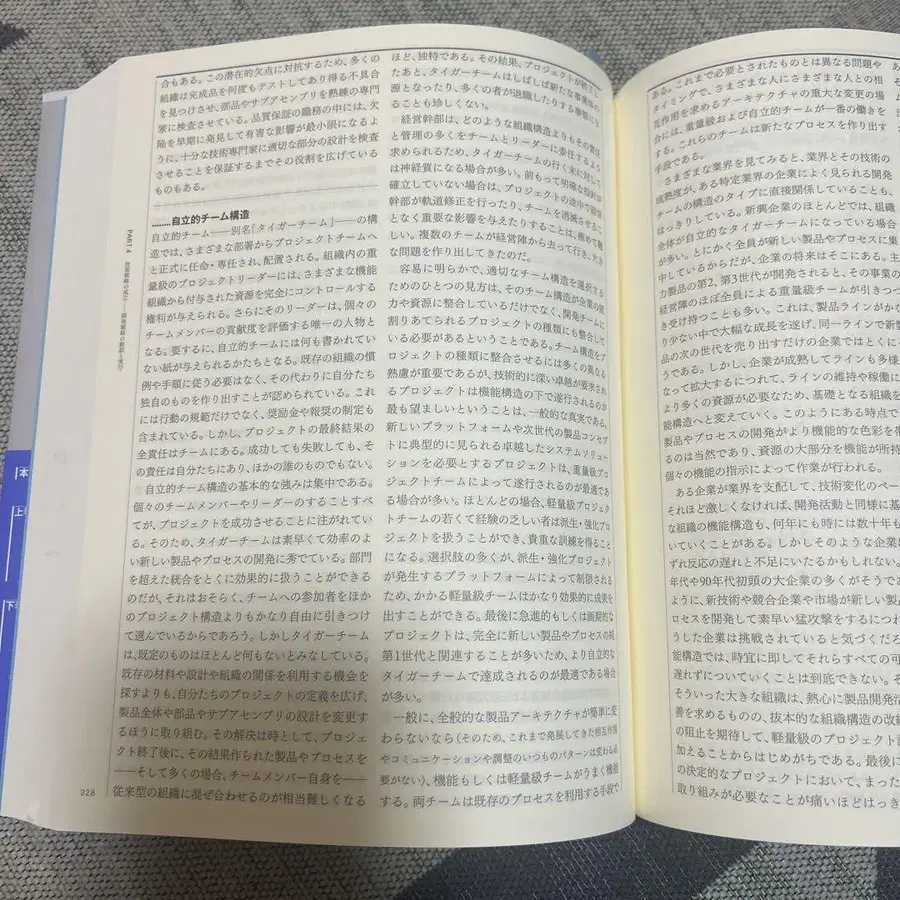 合もある。この潜在的欠点に対抗するため、多くの
組織は完成品を何度もテストしてあり得る不具合
を見つけさせ、部品やサブアセンブリを熟練の専門
家に検査させている。品質保証の職務の中には、欠
陥を早期に発見して有害な影響が最小限になるよ
うに、十分な技術専門家に適切な部分の設計を検査
させることを保証するまでその役割を広げている
ものもある。
........自立的チーム構造
自立的チーム——別名「タイガーチーム」——の構
造では、さまざまな部署からプロジェクトチームへ
と正式に任命・専任され、配置される。組織内の重
量級のプロジェクトリーダーには、さまざまな機能
組織から付与された資源を完全にコントロールする
権利が与えられる。さらにそのリーダーは、個々の
チームメンバーの貢献度を評価する唯一の人物と
なる。要するに、自立的チームには何も書かれてい
ない紙が与えられるかたちとなる。既存の組織の慣
例や手順に従う必要はなく、その代わりに自分たち
独自のものを作り出すことが認められている。これ
には行動の規範だけでなく、奨励金や報奨の制定も
含まれている。しかし、プロジェクトの最終結果の
全責任はチームにある。成功しても失敗しても、そ
の責任は自分たちにあり、ほかの誰のものでもない。
自立的チーム構造の基本的な強みは集中である。
個々のチームメンバーやリーダーのすることすべ
てが、プロジェクトを成功させることに注がれてい
る。そのため、タイガーチームは素早くて効率のよ
い新しい製品やプロセスの開発に秀でている。部門
を超えた統合をとくに効果的に扱うことができる
のだが、それはおそらく、チームへの参加者をほか
のプロジェクト構造よりもかなり自由に引きつけ
て選んでいるからであろう。しかしタイガーチーム
は、既定のものはほとんど何もないとみなしている。
既存の材料や設計や組織の関係を利用する機会を
探すよりも、自分たちのプロジェクトの定義を広げ、
製品全体や部品やサブアセンブリの設計を変更す
るほうに取り組む。その解決は時として、プロジェ
クト終了後に、その結果作られた製品やプロセスを
——そして多くの場合、チームメンバー自身を——
従来型の組織に混ぜ合わせるのが相当難しくなる
ほど、独特である。その結果、プロジェクトが終了し
たあと、タイガーチームはしばしば新たな事業体の
源となったり、多くの者が退職したりする事態にな
ることも珍しくない。
経営幹部は、どのような組織構造よりもその責任
と管理の多くをチームとリーダーに委任するよう
求められるため、タイガーチームの行く末に対して
は神経質になる場合が多い。前もって明確な指針が
確立していない場合は、プロジェクトの途中で経営
幹部が軌道修正を行ったり、チームを消滅させるこ
となく重要な影響を与えたりすることは、極めて難
しい。複数のチームが経営陣から去って行き、大き
な問題を作り出してきたのだ。
容易に明らかで、適切なチーム構造を選択する
ためのひとつの見方は、そのチーム構造が企業の能
力や資源に整合しているだけでなく、開発チームに
割りあてられるプロジェクトの種類にも整合して
いる必要があるということである。チーム構造をプ
ロジェクトの種類に整合させるには多くの異なる
熟慮が重要であるが、技術的に深い卓越が要求され
るプロジェクトは機能構造の下で遂行されるのが
最も望ましいということは、一般的な真実である。
新しいプラットフォームや次世代の製品コンセプ
トに典型的に見られる卓越したシステムソリュー
ションを必要とするプロジェクトは、重量級プロ
ジェクトチームによって遂行されるのが最適であ
る場合が多い。ほとんどの場合、軽量級プロジェク
トチームの若くて経験の乏しい者は派生・強化プロ
ジェクトを扱うことができ、貴重な訓練を得ること
になる。選択肢の多くが、派生・強化プロジェクト
が発生するプラットフォームによって制限される
ため、かかる軽量級チームはかなり効果的に成果を
出すことができる。最後に急進的もしくは画期的な
プロジェクトは、完全に新しい製品やプロセスの純
第1世代と関連することが多いため、より自立的な
タイガーチームで達成されるのが最適である場合
が多い。
一般に、全般的な製品アーキテクチャが簡単に変
わらないなら(そのため、これまで発展してきた相互作用
やコミュニケーションや調整のいつものパターンは変わる必
要がない)、機能もしくは軽量級チームがうまく機能
する。両チームは既存のプロセスを利用する手段で
ある。これまで必要とされたものとは異なる問題や
タイミングで、さまざまな人にさまざまな人との相
互作用を求めるアーキテクチャの重大な変更の場
合には、重量級および自立的チームが一番の働きを
する。これらのチームは新たなプロセスを作り出す
手段である。
さまざまな業界を見てみると、業界とその技術の
成熟度が、ある特定業界の企業によく見られる開発
チームの構造のタイプに直接関係していることも、
はっきりしている。新興企業のほとんどでは、組織
全体が自立的なタイガーチームになっている場合
が多い。とにかく全員が新しい製品やプロセスに集
中しているからだが、企業の将来はそこにある。主
力製品の第2、第3世代が開発されると、その事業の
経営陣のほぼ全員による重量級チームが引きつづ
き受け持つことも多い。これは、製品ラインがかな
り少ない中で大幅な成長を遂げ、同一ラインで新製
品の次の世代を売り出すだけの企業ではとくにそ
うである。しかし、企業が成熟してラインも多様
なって拡大するにつれて、ラインの維持や稼働に
より多くの資源が必要なため、基礎となる組織を
能構造へと変えていく。このようにある時点で
製品やプロセスの開発がより機能的な色彩を帯
るのは当然であり、資源の大部分を機能が所持
個々の機能の指示によって作業が行われる。
ある企業が業界を支配して、技術変化のペー
それほど激しくなければ、開発活動と同様に基
な組織の機能構造も、何年にも時には数十年も
いていくことがある。しかしそのような企業は
ずれ反応の遅れと不足にいたるかもしれない。
年代や90年代初頭の大企業の多くがそうであ
ように、新技術や競合企業や市場が新しい製品
ロセスを開発して素早い猛攻撃をするにつれ
うした企業は挑戦されていると気づくだろ
能構造では、時宜に即してそれらすべての可
遅れずについていくことは到底できない。そ
そういった大きな組織は、熱心に製品開発活
善を求めるものの、抜本的な組織構造の改編
の阻止を期待して、軽量級のプロジェクト
加えることからはじめがちである。最後に
の決定的なプロジェクトにおいて、まった
取り組みが必要なことが痛いほどはっき
PART 4
328